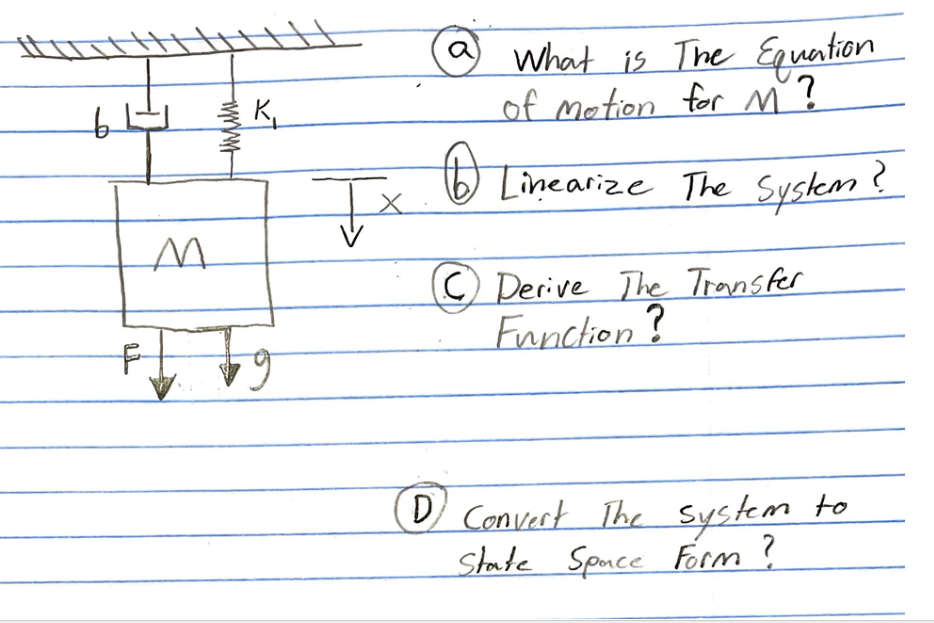 b
K₁
M
x
F
g
a What is The Equation
of motion for M ?
b Linearize The System ?
C Derive The Transfer
Function ?
D Convert The system to
State Space Form ?